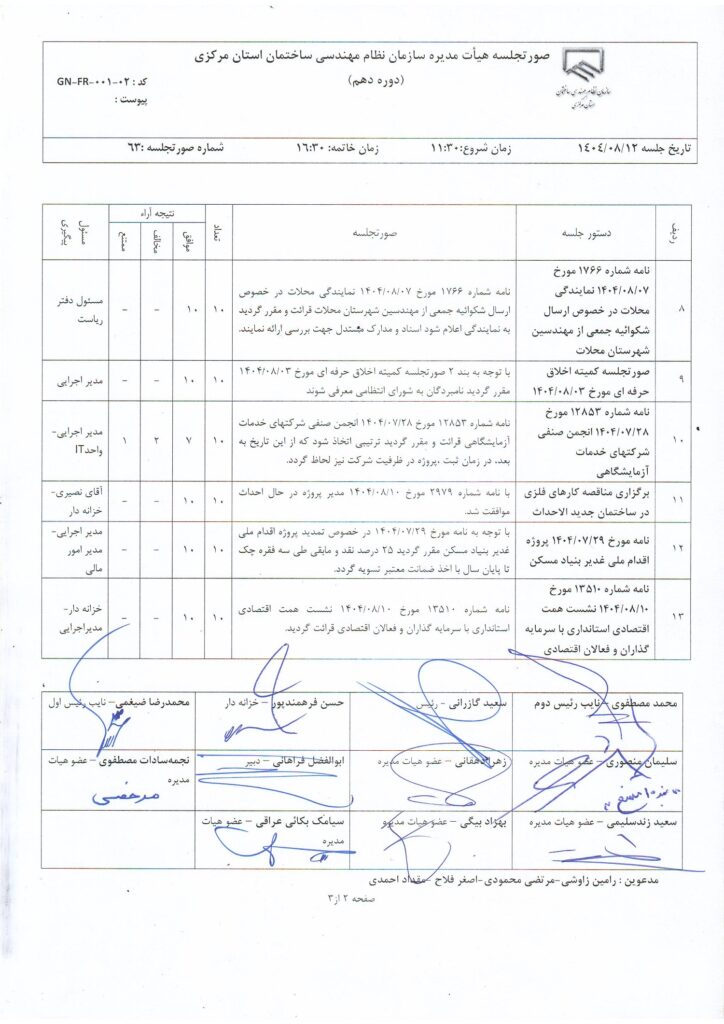 صورتجلسه هیأت مدیره سازمان نظام مهندسی ساختمان استان مرکزی
(دوره دهم)
کد : GN-FR-۰۰۱-۰۲
پیوست :
سازمان نظام مهندسی ساختمان
استان مرکزی
تاریخ جلسه ۱۴۰۴/۰۸/۱۲ زمان شروع:۱۱:۳۰ زمان خاتمه: ۱۶:۳۰ شماره صورتجلسه :۶۳
ردیف دستور جلسه صورتجلسه تعداد نتیجه آراء مسئول پیگیری
موافق مخالف ممتنع
۸
نامه شماره ۱۷۶۶ مورخ
۱۴۰۴/۰۸/۰۷ نمایندگی
محلات در خصوص ارسال
شکوائیه جمعی از مهندسین
شهرستان محلات
نامه شماره ۱۷۶۶ مورخ ۱۴۰۴/۰۸/۰۷ نمایندگی محلات در خصوص
ارسال شکوائیه جمعی از مهندسین شهرستان محلات قرائت و مقرر گردید
به نمایندگی اعلام شود اسناد و مدارک مستدل جهت بررسی ارائه نمایند.
۱۰ ۱۰ – –
مسئول دفتر
ریاست
۹
صورتجلسه کمیته اخلاق
حرفه ای مورخ ۱۴۰۴/۰۸/۰۳
با توجه به بند ۲ صورتجلسه کمیته اخلاق حرفه ای مورخ ۱۴۰۴/۰۸/۰۳
مقرر گردید نامبردگان به شورای انتظامی معرفی شوند
۱۰ ۱۰ – –
مدیر اجرایی
۱۰
نامه شماره ۱۲۸۵۳ مورخ
۱۴۰۴/۰۷/۲۸ انجمن صنفی
شرکتهای خدمات
آزمایشگاهی
نامه شماره ۱۲۸۵۳ مورخ ۱۴۰۴/۰۷/۲۸ انجمن صنفی شرکتهای خدمات
آزمایشگاهی قرائت و مقرر گردید ترتیبی اتخاذ شود که از این تاریخ به
بعد، در زمان ثبت ،پروژه در ظرفیت شرکت نیز لحاظ گردد.
۱۰ ۷ ۲ ۱
مدیر اجرایی-
واحدIT
۱۱
برگزاری مناقصه کارهای فلزی
در ساختمان جدید الاحداث
با نامه شماره ۲۹۷۹ مورخ ۱۴۰۴/۰۸/۱۰ مدیر پروژه در حال احداث
موافقت شد.
۱۰ ۱۰ – –
آقای نصیری-
خزانه دار
۱۲
نامه مورخ ۱۴۰۴/۰۷/۲۹ پروژه
اقدام ملی غدیر بنیاد مسکن
با توجه به نامه مورخ ۱۴۰۴/۰۷/۲۹ در خصوص تمدید پروژه اقدام ملی
غدیر بنیاد مسکن مقرر گردید ۲۵ درصد نقد و مابقی طی سه فقره چک
تا پایان سال با اخذ ضمانت معتبر تسویه گردد.
۱۰ ۱۰ – –
مدیر اجرایی-
مدیر امور
مالی
۱۳
نامه شماره ۱۳۵۱۰ مورخ
۱۴۰۴/۰۸/۱۰ نشست همت
اقتصادی استانداری با سرمایه
گذاران و فعالان اقتصادی
نامه شماره ۱۳۵۱۰ مورخ ۱۴۰۴/۰۸/۱۰ نشست همت اقتصادی
استانداری با سرمایه گذاران و فعالان اقتصادی قرائت گردید.
۱۰ ۱۰ – –
خزانه دار-
مدیراجرایی
محمد مصطفوی – نایب رئیس دوم سعید گازرانی – رئیس حسن فرهمندپور – خزانه دار محمدرضا ضیغمی – نایب رئیس اول
سلیمان منصوری – عضو هیات مدیره زهرا دهقانی – عضو هیات مدیره ابوالفضل فراهانی – دبیر نجمه‌سادات مصطفوی – عضو هیات
مدیره
سعید زندسلیمی – عضو هیات مدیره بهزاد بیگی – عضو هیات مدیره سیامک بکائی عراقی – عضو هیات
مدیره
مدعوین : رامین زاوشی-مرتضی محمودی-اصغر فلاح -مقداد احمدی
صفحه ۲ از۳